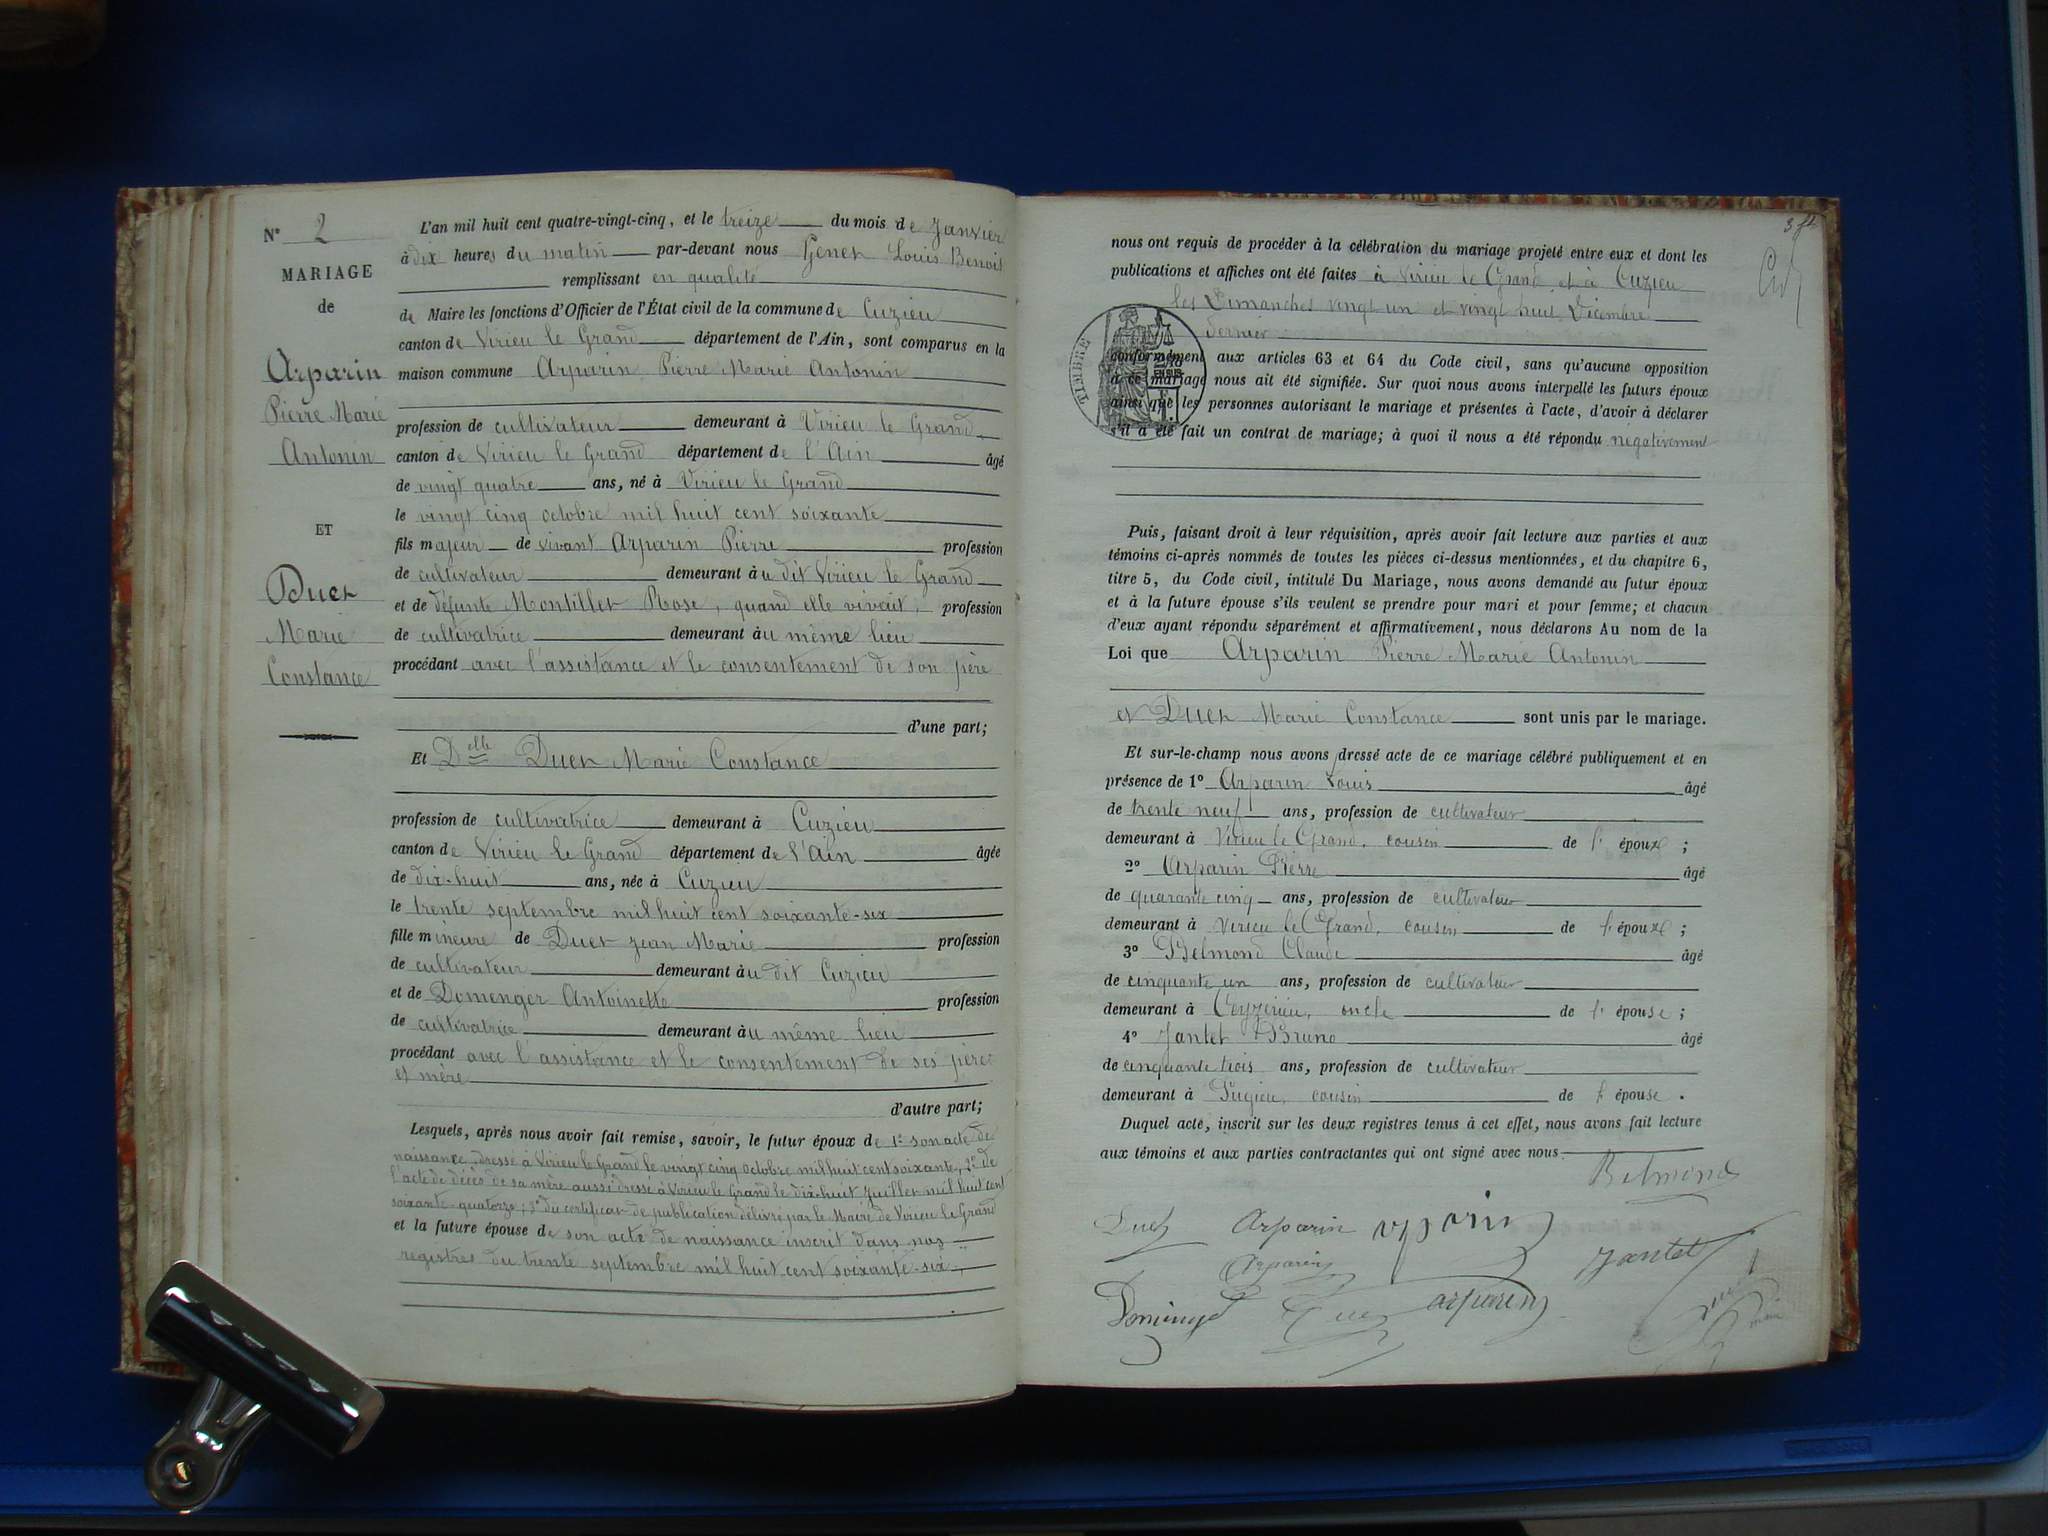 N° 2
MARIAGE
de
Arparin
Pierre Marie
Antonin
ET
Duet
Marie
Constance
L'an mil huit cent quatre-vingt-cinq, et le treize du mois de Janvier
à dix heures du matin par-devant nous Genet Louis Benoit
remplissant en qualité
de Maire les fonctions d'Officier de l'État civil de la commune de Cuzieu
canton de Virieu le Grand département de l'Ain, sont comparus en la
maison commune Arparin Pierre Marie Antonin
profession de cultivateur demeurant à Virieu le Grand
canton de Virieu le Grand département de l'Ain âgé
de vingt quatre ans, né à Virieu le Grand
le vingt cinq octobre mil huit cent soixante
fils majeur de vivant Arparin Pierre profession
de cultivateur demeurant au dit Virieu le Grand
et de défunte Montillet Rose, quand elle vivait, profession
de cultivatrice demeurant au même lieu
procédant avec l'assistance et le consentement de son père
d'une part;
Et Delle Duet Marie Constance
profession de cultivatrice demeurant à Cuzieu
canton de Virieu le Grand département de l'Ain âgée
de dix-huit ans, née à Cuzieu
le trente septembre mil huit cent soixante-six
fille mineure de Duet Jean Marie profession
de cultivateur demeurant au dit Cuzieu
et de Domenger Antoinette profession
de cultivatrice demeurant au même lieu
procédant avec l'assistance et le consentement de ses père
et mère
d'autre part;
Lesquels, après nous avoir fait remise, savoir, le futur époux de 1° son acte de
naissance dressé à Virieu le Grand le vingt cinq octobre mil huit cent soixante, 2° de
l'acte de décès de sa mère aussi dressé à Virieu le Grand le dix-huit Juillet mil huit cent
soixante-quatorze; 3° du certificat de publication délivré par le Maire de Virieu le Grand
et la future épouse de son acte de naissance inscrit dans nos
registres du trente septembre mil huit cent soixante-six
nous ont requis de procéder à la célébration du mariage projeté entre eux et dont les
publications et affiches ont été faites à Virieu le Grand et à Cuzieu
les Dimanches vingt un et vingt huit Décembre
dernier
TIMBRE
conformément aux articles 63 et 64 du Code civil, sans qu'aucune opposition
à ce mariage nous ait été signifiée. Sur quoi nous avons interpellé les futurs époux
ainsi que les personnes autorisant le mariage et présentes à l'acte, d'avoir à déclarer
s'il a été fait un contrat de mariage; à quoi il nous a été répondu négativement
Puis, faisant droit à leur réquisition, après avoir fait lecture aux parties et aux
témoins ci-après nommés de toutes les pièces ci-dessus mentionnées, et du chapitre 6,
titre 5, du Code civil, intitulé Du Mariage, nous avons demandé au futur époux
et à la future épouse s'ils veulent se prendre pour mari et pour femme; et chacun
d'eux ayant répondu séparément et affirmativement, nous déclarons Au nom de la
Loi que Arparin Pierre Marie Antonin
et Duet Marie Constance sont unis par le mariage.
Et sur-le-champ nous avons dressé acte de ce mariage célébré publiquement et en
présence de 1° Arparin Louis âgé
de trente neuf ans, profession de cultivateur
demeurant à Virieu le Grand, cousin de l' époux ;
2° Arparin Pierre âgé
de quarante cinq ans, profession de cultivateur
demeurant à Virieu le Grand, cousin de l' époux ;
3° Belmond Claude âgé
de cinquante un ans, profession de cultivateur
demeurant à Ceyzérieu, oncle de l' épouse ;
4° Jantet Bruno âgé
de cinquante trois ans, profession de cultivateur
demeurant à Pugieu, cousin de l' épouse .
Duquel acte, inscrit sur les deux registres tenus à cet effet, nous avons fait lecture
aux témoins et aux parties contractantes qui ont signé avec nous.
Belmond
Duet Arparin arparin
Arparin Jantet
Domenge Duet arparin